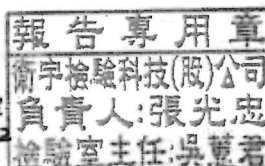 報告專用章
衛宇檢驗科技(股)公司
負責人:張光忠
檢驗室主任:吳